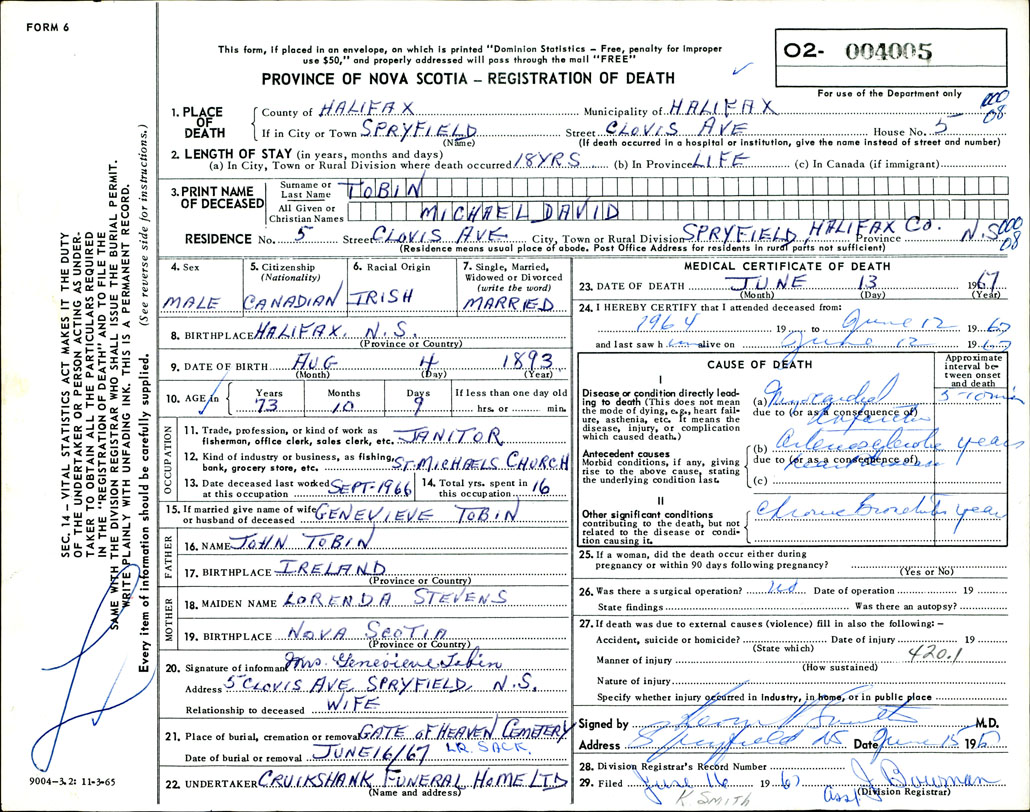 FORM 6
This form, if placed in an envelope, on which is printed "Dominion Statistics – Free, penalty for improper
use $50," and properly addressed will pass through the mail "FREE"
PROVINCE OF NOVA SCOTIA – REGISTRATION OF DEATH
O2- 004005
For use of the Department only
SEC. 14 – VITAL STATISTICS ACT MAKES IT THE DUTY
OF THE UNDERTAKER OR PERSON ACTING AS UNDER-
TAKER TO OBTAIN ALL THE PARTICULARS REQUIRED
IN THE "REGISTRATION OF DEATH" AND TO FILE THE
SAME WITH THE DIVISION REGISTRAR WHO SHALL ISSUE THE BURIAL PERMIT.
WRITE PLAINLY WITH UNFADING INK. THIS IS A PERMANENT RECORD.
Every item of information should be carefully supplied. (See reverse side for instructions.)
1. PLACE OF DEATH
County of HALIFAX Municipality of HALIFAX 000 08
If in City or Town SPRYFIELD Street CLOVIS AVE House No. 5
(Name) (If death occurred in a hospital or institution, give the name instead of street and number)
2. LENGTH OF STAY (in years, months and days)
(a) In City, Town or Rural Division where death occurred 18 YRS (b) In Province LIFE (c) In Canada (if immigrant)
3. PRINT NAME OF DECEASED
Surname or Last Name TOBIN
All Given or Christian Names MICHAEL DAVID
RESIDENCE No. 5 Street CLOVIS AVE City, Town or Rural Division SPRYFIELD, HALIFAX CO. Province N.S. 000 08
(Residence means usual place of abode. Post Office Address for residents in rural parts not sufficient)
4. Sex MALE
5. Citizenship (Nationality) CANADIAN
6. Racial Origin IRISH
7. Single, Married, Widowed or Divorced (write the word) MARRIED
8. BIRTHPLACE HALIFAX, N.S.
(Province or Country)
9. DATE OF BIRTH AUG 4 1893
(Month) (Day) (Year)
10. AGE in Years 73 Months 10 Days 9 If less than one day old hrs. or min.
OCCUPATION
11. Trade, profession, or kind of work as
fisherman, office clerk, sales clerk, etc. JANITOR
12. Kind of industry or business, as fishing,
bank, grocery store, etc. ST. MICHAELS CHURCH
13. Date deceased last worked at this occupation SEPT-1966 14. Total yrs. spent in this occupation 16
15. If married give name of wife
or husband of deceased GENEVIEVE TOBIN
FATHER
16. NAME JOHN TOBIN
17. BIRTHPLACE IRELAND
(Province or Country)
MOTHER
18. MAIDEN NAME LORENDA STEVENS
19. BIRTHPLACE NOVA SCOTIA
(Province or Country)
20. Signature of informant Mrs. Genevieve Tobin
Address 5 CLOVIS AVE, SPRYFIELD, N.S.
Relationship to deceased WIFE
21. Place of burial, cremation or removal GATE OF HEAVEN CEMETERY
Date of burial or removal JUNE 16/67 LR. SACK.
22. UNDERTAKER CRUIKSHANK FUNERAL HOME LTD
(Name and address)
9004-3.2: 11-3-65
MEDICAL CERTIFICATE OF DEATH
23. DATE OF DEATH JUNE 13 1967
(Month) (Day) (Year)
24. I HEREBY CERTIFY that I attended deceased from:
1964 19 to June 12 1967
and last saw him alive on June 12 1967
CAUSE OF DEATH
Approximate interval between onset and death
I
Disease or condition directly leading to death (This does not mean
the mode of dying, e.g., heart failure, asthenia, etc. It means the
disease, injury, or complication
which caused death.)
(a) Myocardial 5-10 min
due to (or as a consequence of) infarction
Antecedent causes
Morbid conditions, if any, giving
rise to the above cause, stating
the underlying condition last.
(b) Arteriosclerotic years
due to (or as a consequence of)
(c)
II
Other significant conditions
contributing to the death, but not
related to the disease or condition causing it.
Chronic Bronchitis years
25. If a woman, did the death occur either during
pregnancy or within 90 days following pregnancy?
(Yes or No)
26. Was there a surgical operation? no Date of operation 19
State findings Was there an autopsy?
27. If death was due to external causes (violence) fill in also the following: –
Accident, suicide or homicide? Date of injury 19
(State which)
Manner of injury 420.1
(How sustained)
Nature of injury
Specify whether injury occurred in industry, in home, or in public place
Signed by Smith M.D.
Address Spryfield NS Date June 15 1967
28. Division Registrar's Record Number
29. Filed June 16 1967 J Bowman
K. SMITH Asst (Division Registrar)